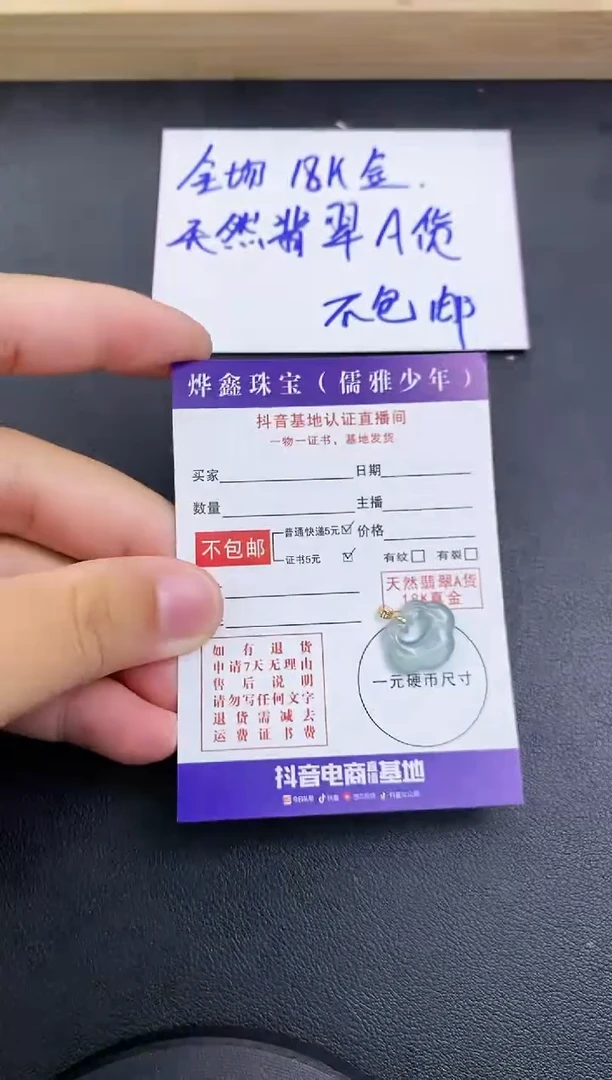 全场 18K金.
天然翡翠A货
不包邮
烨鑫珠宝（儒雅少年）
抖音基地认证直播间
一物一证书，基地发货
买家 日期
数量 主播
不包邮 普通快递5元☑ 价格
证书5元 ☑ 有纹□ 有裂□
天然翡翠A货
18K真金
如有退货
申请7天无理由
售后说明
请勿写任何文字
退货需减去
运费证书费
一元硬币尺寸
抖音电商直播基地
今日头条 抖音 西瓜视频 抖音火山版